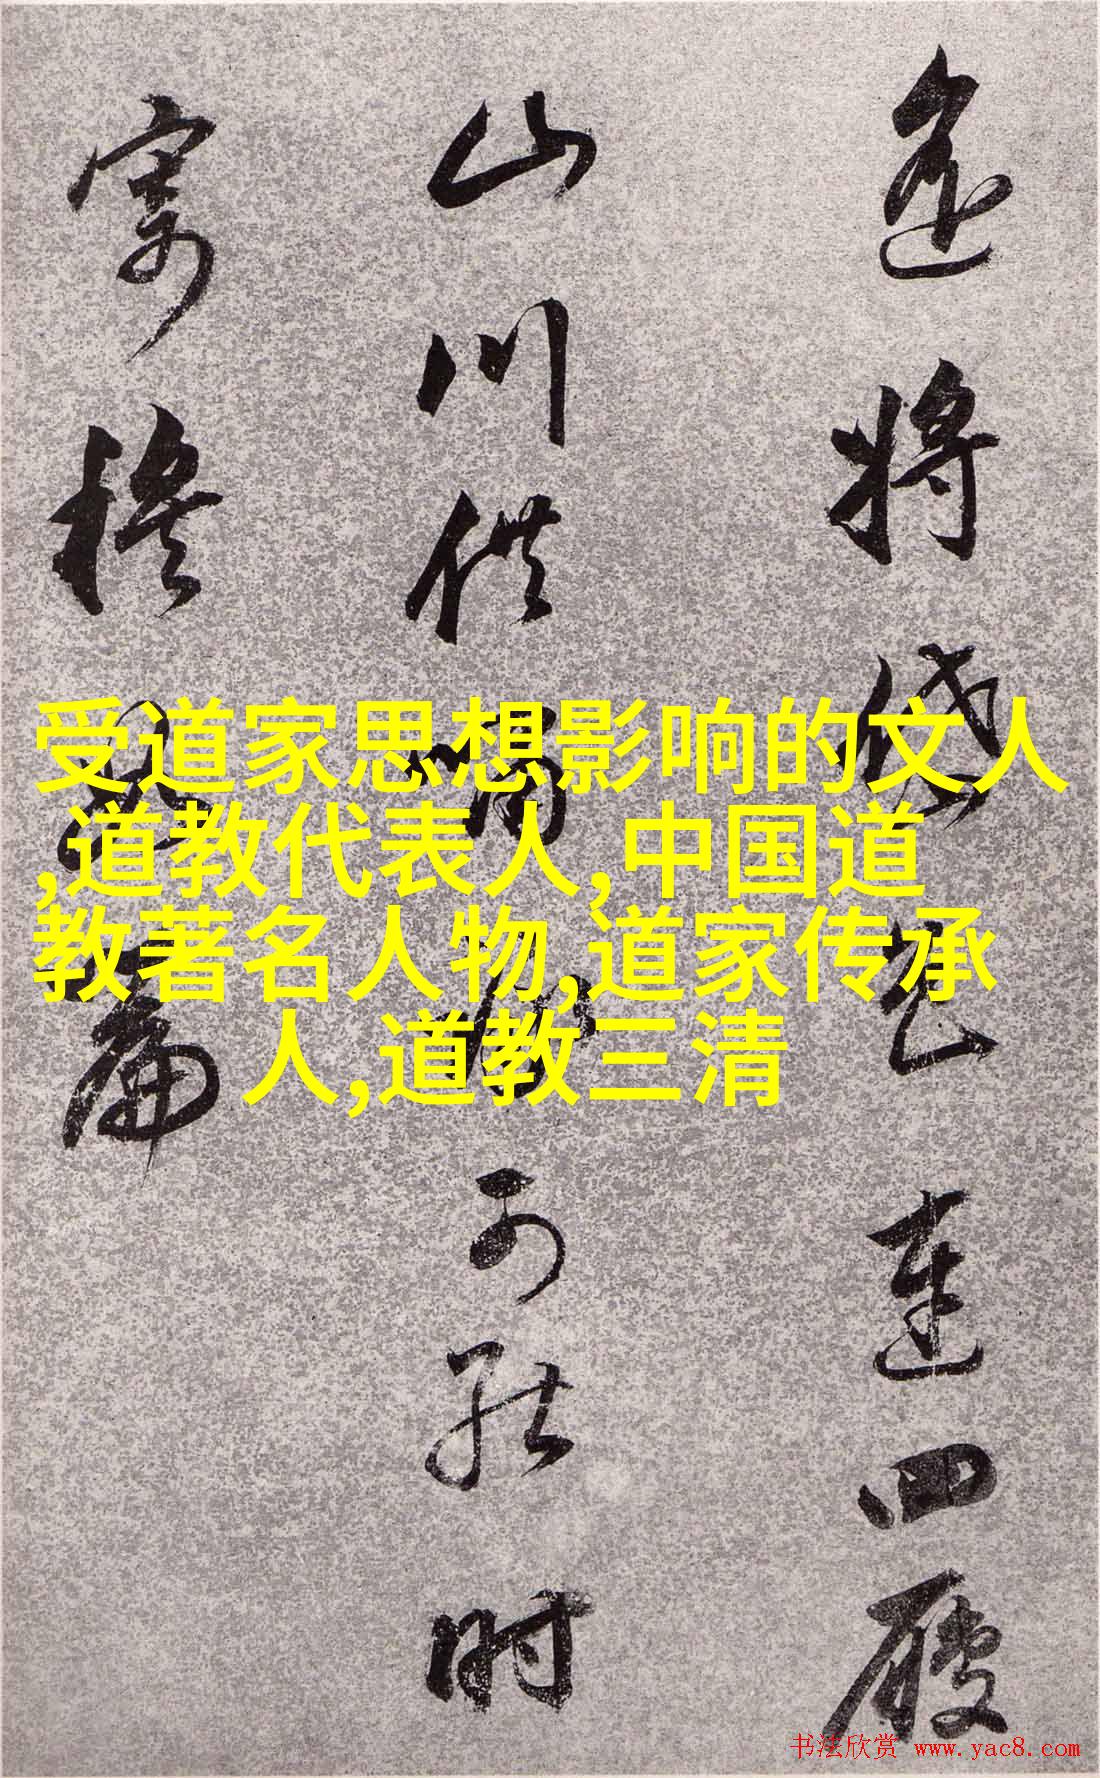 受道家思想影响的文人
,道教代表人,中国道
教著名人物,道家传承
人,道教三清
將岱色連四履
山川供可時
寄穆篇
书法欣赏 www.yac8.com